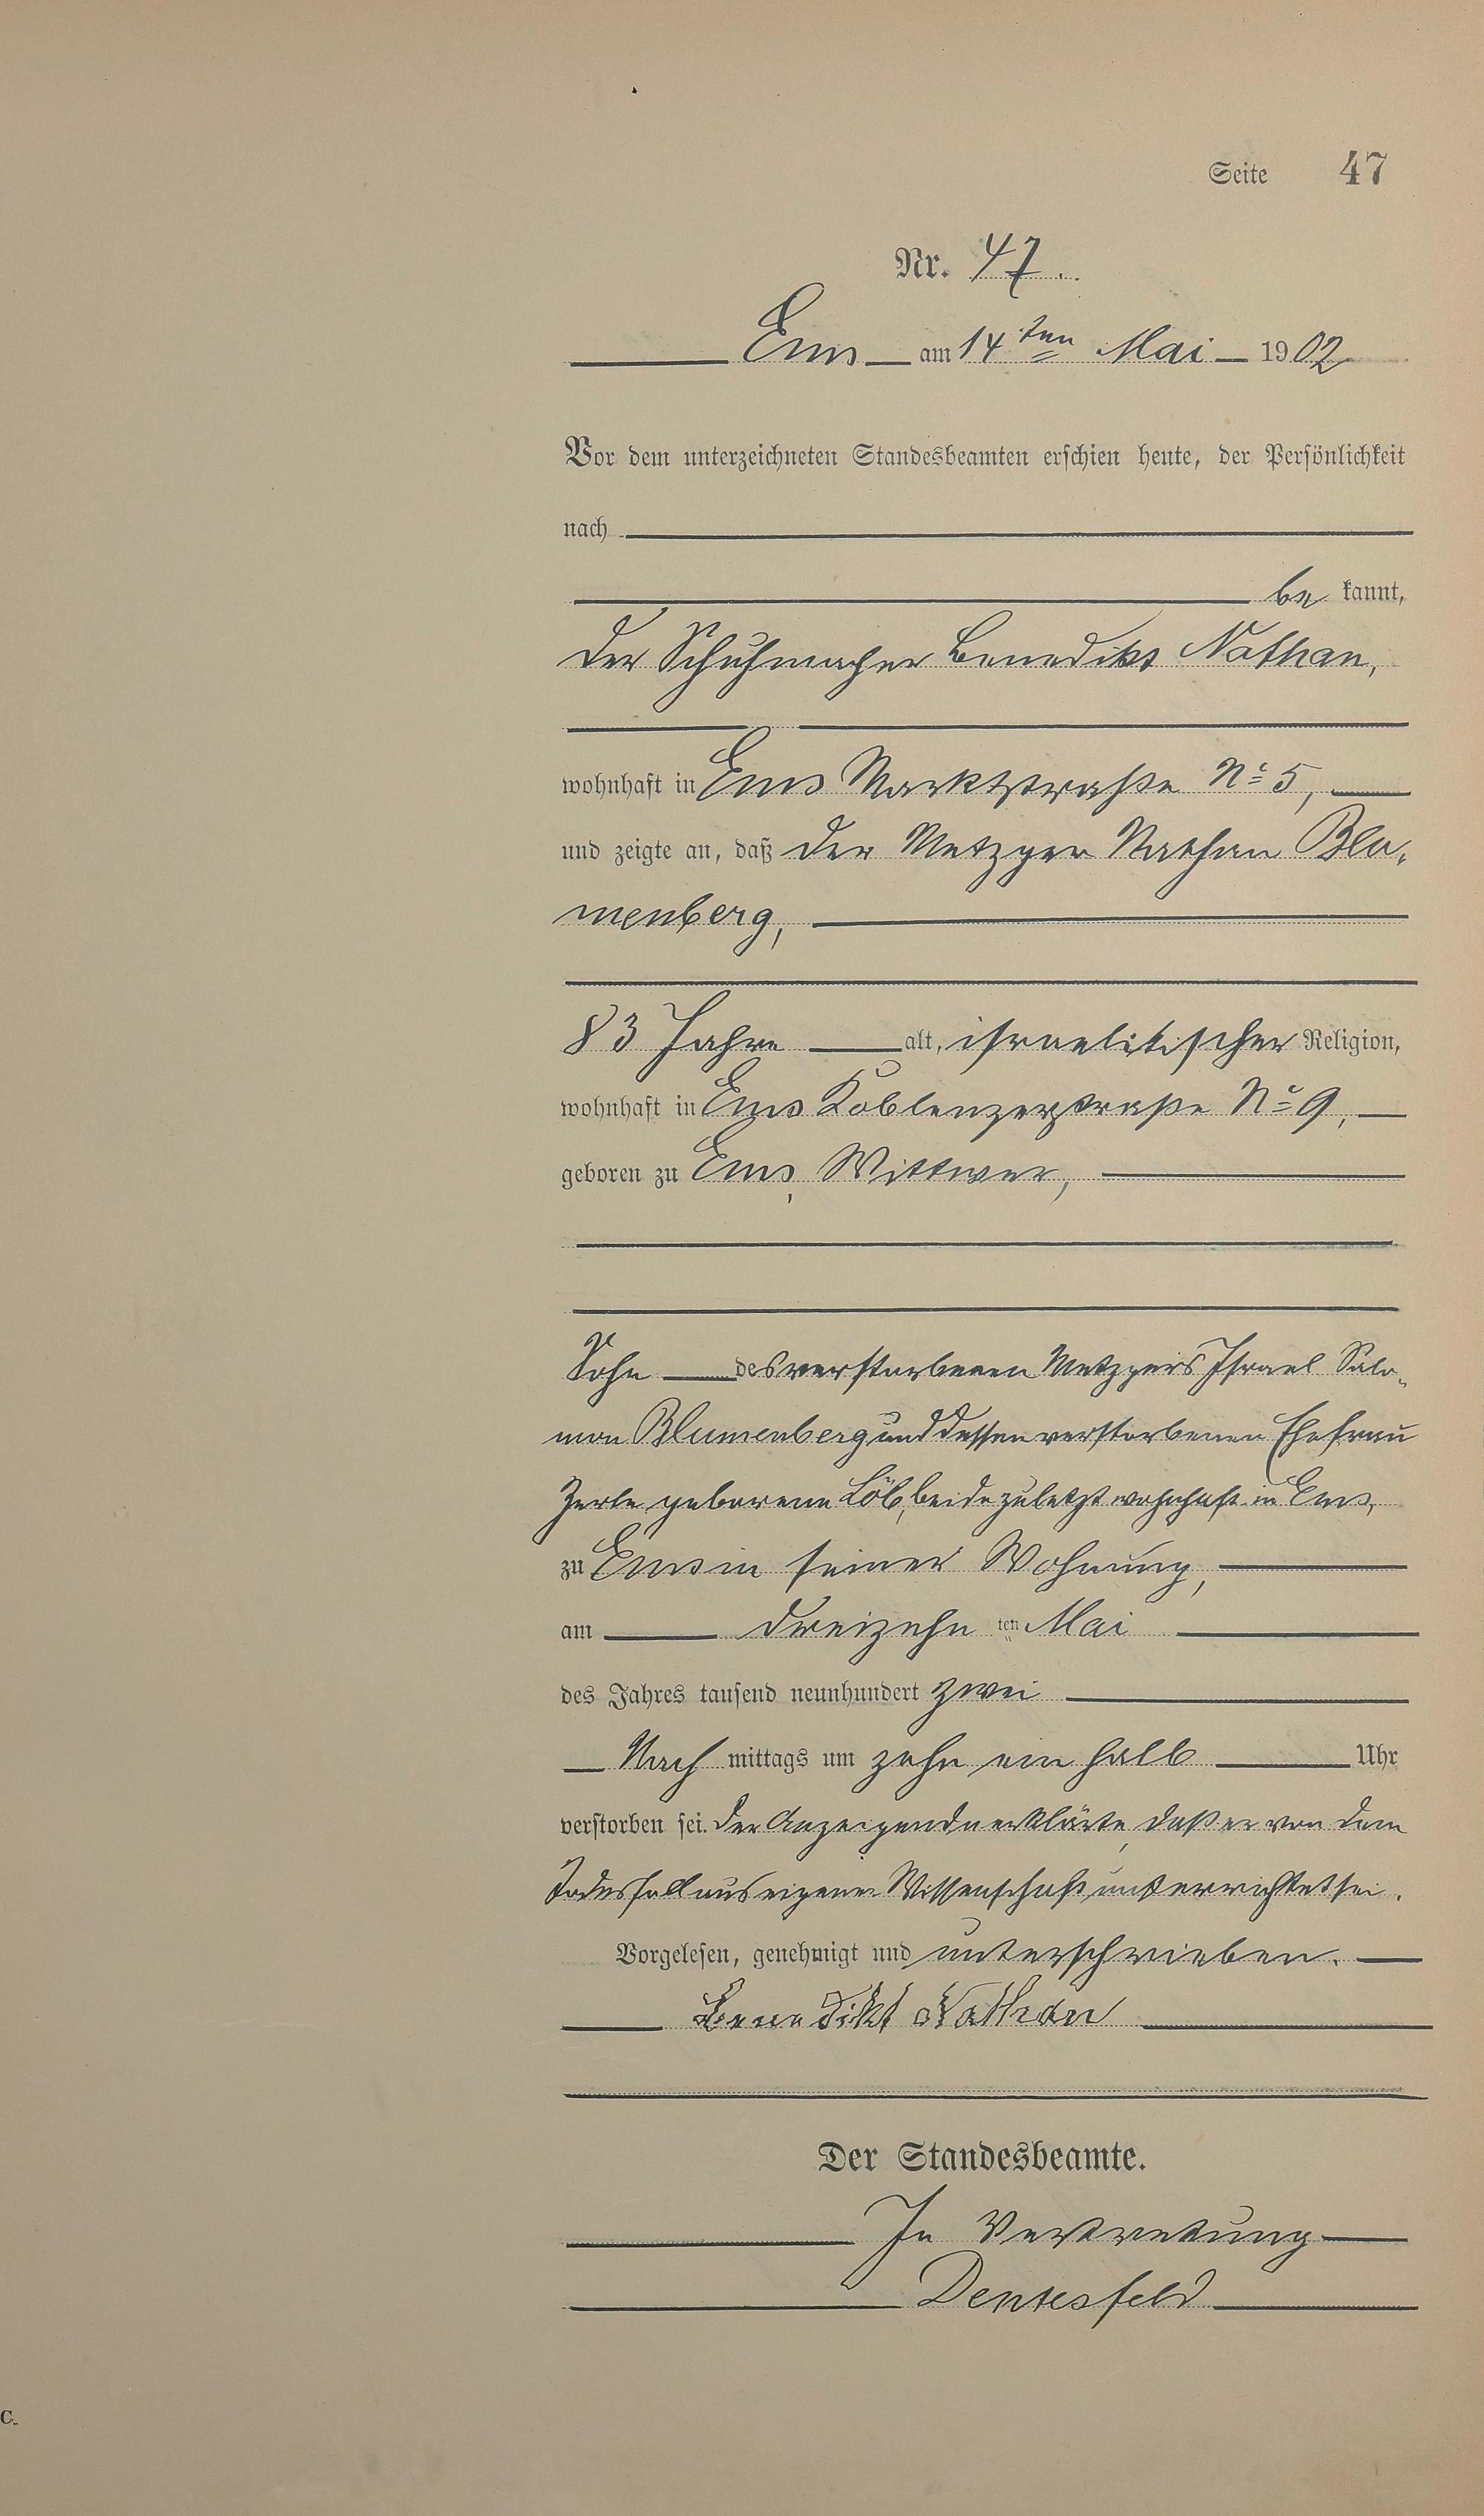 Seite 47
Nr. 47.
Ems am 14ten Mai 1902
Vor dem unterzeichneten Standesbeamten erschien heute, der Persönlichkeit
nach
be kannt,
der Schuhmacher Benedikt Nathan,
wohnhaft in Ems Marktstraße No 5,
und zeigte an, daß der Metzger Nathan Blu-
menberg,
83 Jahre alt, israelitischer Religion,
wohnhaft in Ems Koblenzerstraße No 9,
geboren zu Ems, Wittwer,
Sohn des verstorbenen Metzgers Israel Salo-
mon Blumenberg und dessen verstorbenen Ehefrau
Zerle geborene Löb, beide zuletzt wohnhaft in Ems,
zu Ems in seiner Wohnung,
am dreizehn ten Mai
des Jahres tausend neunhundert zwei
Nach mittags um zehn ein halb Uhr
verstorben sei. Der Anzeigende erklärte, daß er von dem
Todesfall aus eigener Wissenschaft unterrichtet sei.
Vorgelesen, genehmigt und unterschrieben.
Benedikt Nathan
Der Standesbeamte.
In Vertretung
C.